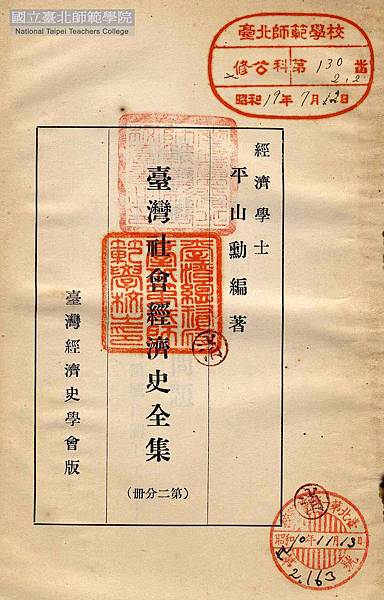 國立臺北師範學院
National Taipei Teachers College
臺北師範學校
修公科第130番
2,2
昭和19年7月12日
經濟學士
平山勳編著
臺灣社會經濟史全集
(第二分冊)
臺灣經濟史學會版
消
消
昭和10年11月13日
2163